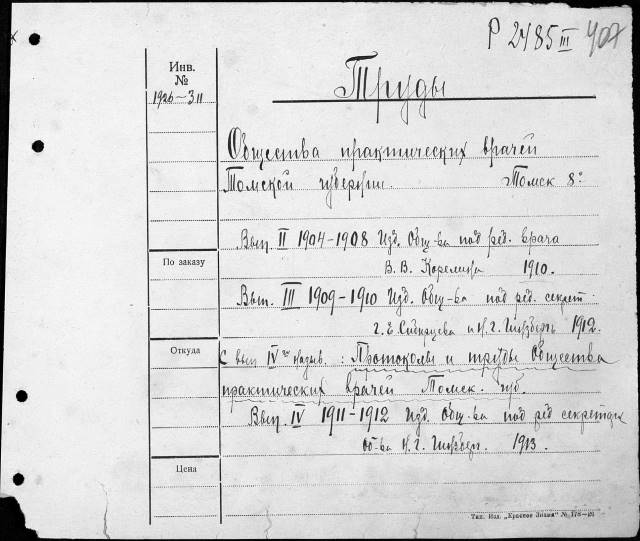 Р 2485 III 407
Инв.
№
1926-311
Труды
Общества практических врачей
Томской губернии. Томск 8°
Вып. II 1904-1908 Изд. Общ-ва под ред. врача
По заказу
В. В. Корелина 1910.
Вып. III 1909-1910 Изд. Общ-ва под ред. секрет.
Г. Е. Сибирцева и Н. Г. 1912.
Откуда
С вып IV назыв.: Протоколы и труды Общества
практических врачей Томск. губ.
Вып. IV 1911-1912 Изд. Общ-ва под ред секретаря
Об-ва Н. Г. 1913.
Цена
Тип. Изд. „Красное Знамя"